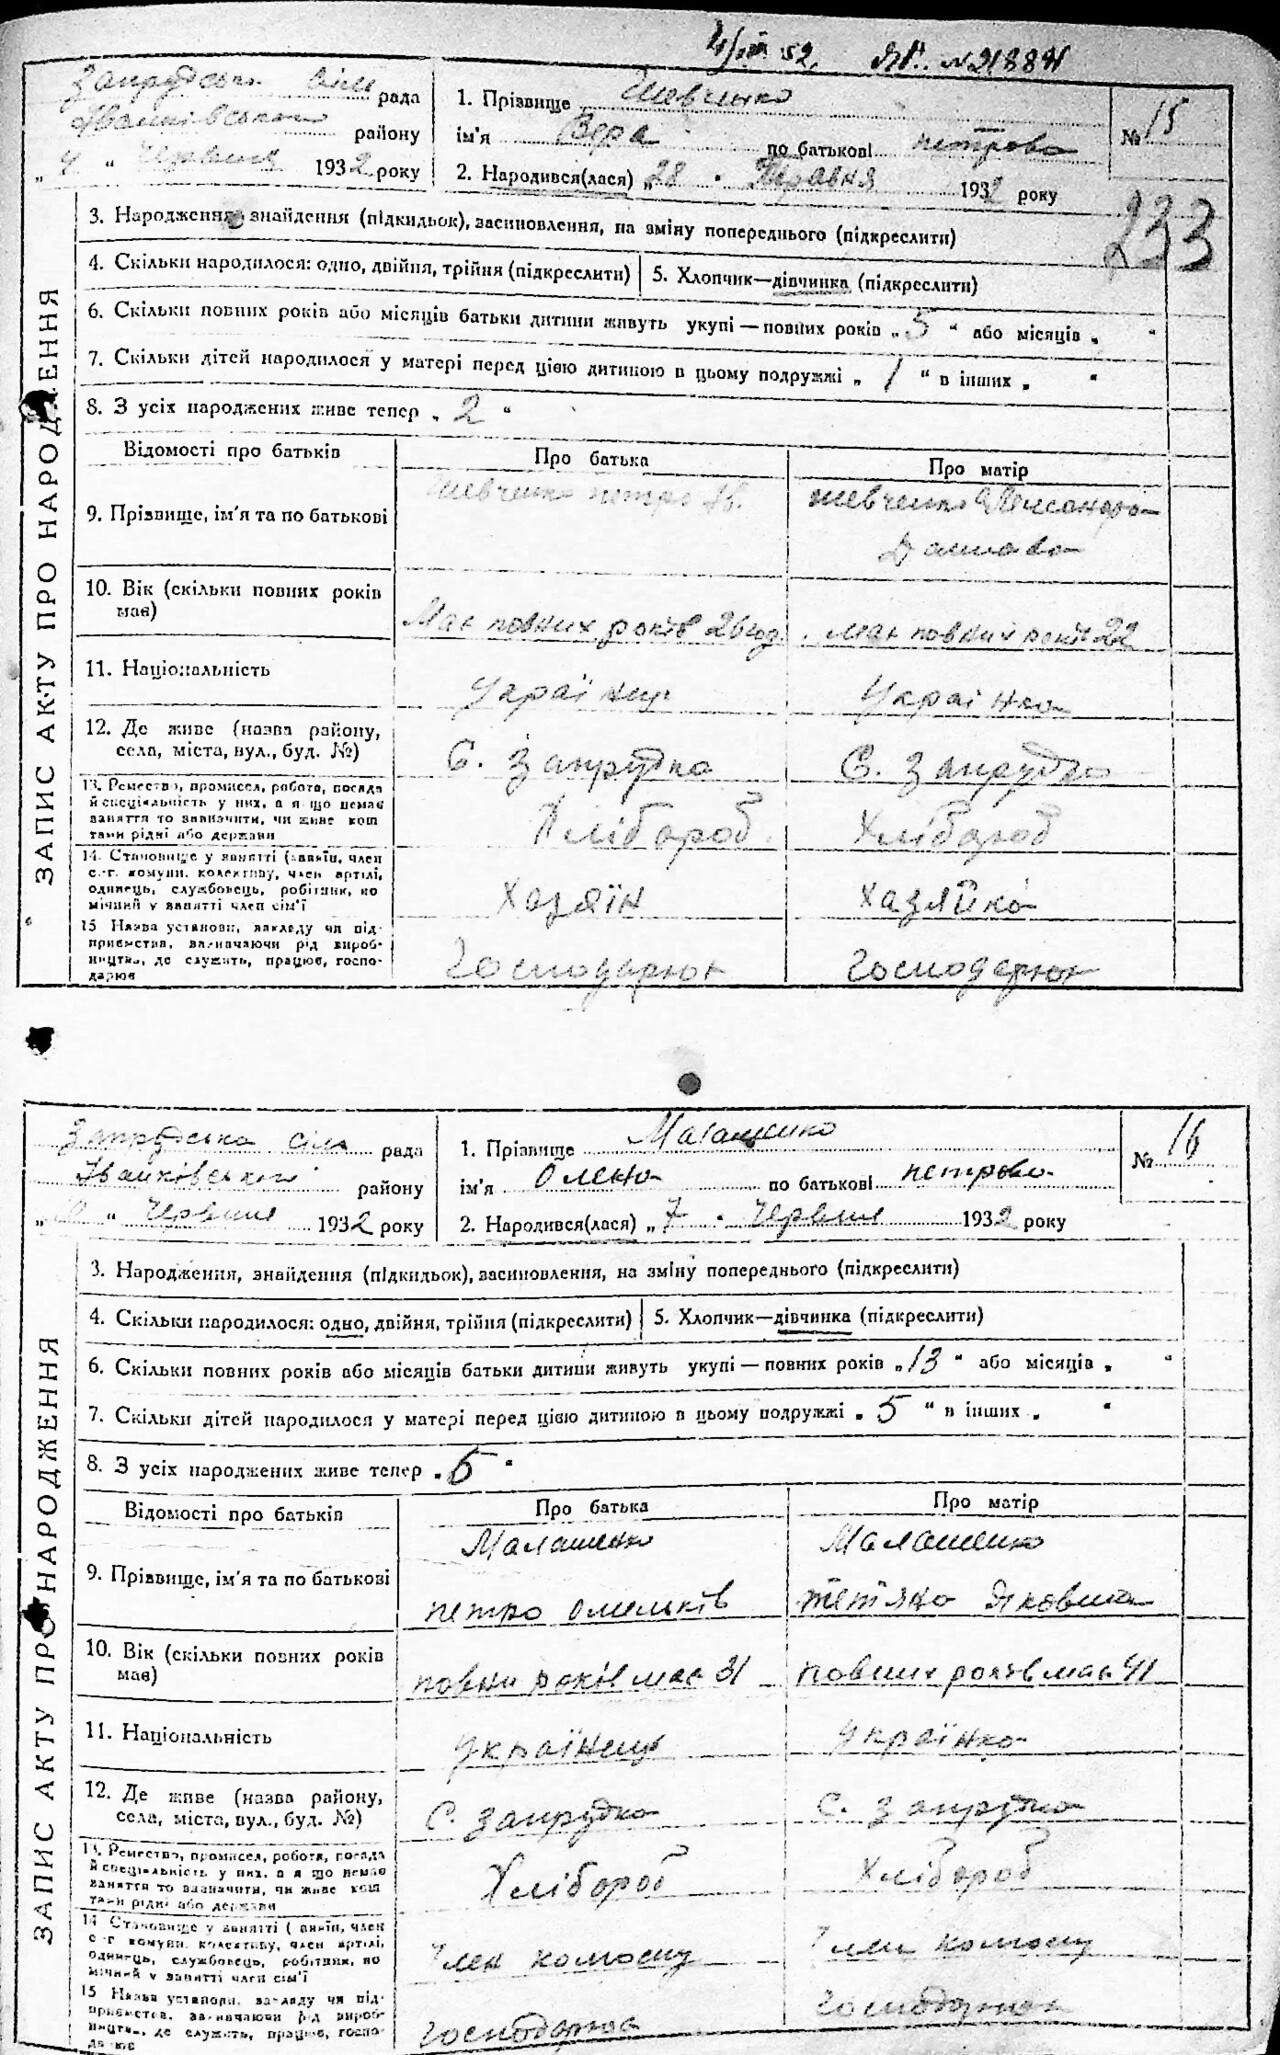 4/III 52. ЯР. №21884
Запрудська сіль рада
Іванківського району
„ 4 “ Червня 1932 року
1. Прізвище Шевченко
ім'я Вера по батькові петрова
2. Народився(лася) „28 “ Травня 1932 року
№ 15
233
3. Народження, знайдення (підкидьок), засиновлення, на зміну попереднього (підкреслити)
4. Скільки народилося: одно, двійня, трійня (підкреслити) 5. Хлопчик—дівчинка (підкреслити)
6. Скільки повних років або місяців батьки дитини живуть укупі — повних років „ 5 “ або місяців „ “
7. Скільки дітей народилося у матері перед цією дитиною в цьому подружжі „ 1 “ в інших „ “
8. З усіх народжених живе тепер „ 2 “
ЗАПИС АКТУ ПРО НАРОДЖЕННЯ
Відомості про батьків Про батька Про матір
9. Прізвище, ім'я та по батькові
Шевченко петро
шевченко Олександра
10. Вік (скільки повних років має)
Має повних років 26 год. має повних років 22
11. Національність
Українець Українка
12. Де живе (назва району,
села, міста, вул., буд. №)
С. Запрудка С. Запрудка
13. Ремество, промисел, робота, посада
й спеціяльність у них, а я що немає
заняття то зазначити, чи живе кош
тами рідні або держави
Хлібороб Хлібороб
14. Становище у занятті (хазяїн, член
с.-г. комуни, колективу, член артілі,
одинець, службовець, робітник, по
мічний у занятті член сім'ї
Хазяїн Хазяйка
15 Назва установи, закладу чи під-
приємства, зазначаючи рід вироб-
ництва, де служить, працює, госпо-
дарює
Господарює Господарює
Запрудська сіль рада
Іванківського району
„ “ Червня 1932 року
1. Прізвище Малашенко
ім'я Олена по батькові петрова
2. Народився(лася) „ 7 “ Червня 1932 року
№ 16
3. Народження, знайдення (підкидьок), засиновлення, на зміну попереднього (підкреслити)
4. Скільки народилося: одно, двійня, трійня (підкреслити) 5. Хлопчик—дівчинка (підкреслити)
6. Скільки повних років або місяців батьки дитини живуть укупі — повних років „ 13 “ або місяців „ “
7. Скільки дітей народилося у матері перед цією дитиною в цьому подружжі „ 5 “ в інших „ “
8. З усіх народжених живе тепер „ 5 “
ЗАПИС АКТУ ПРО НАРОДЖЕННЯ
Відомості про батьків Про батька Про матір
9. Прізвище, ім'я та по батькові
Малашенко Малашенко
петро Омельків тет'яна
10. Вік (скільки повних років має)
повни років має 31 повних років має 41
11. Національність
Українець Українка
12. Де живе (назва району,
села, міста, вул., буд. №)
С. Запрудка С. Запрудка
13. Ремество, промисел, робота, посада
й спеціяльність у них, а я що немає
заняття то зазначити, чи живе кош
тами рідні або держави
Хлібороб Хлібороб
14 Становище у занятті (хазяїн, член
с.-г. комуни, колективу, член артілі,
одинець, службовець, робітник, по
мічний у занятті член сім'ї
Член комосу Член комосу
15 Назва установи, закладу чи під-
приємства, зазначаючи рід вироб-
ництва, де служить, працює, госпо-
дарює
Господарює Господарює